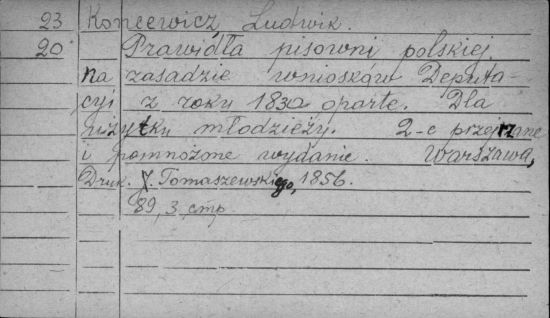 23 Koncewicz, Ludwik.
20 Prawidła pisowni polskiej
na zasadzie wniosków Deputa-
cyi z roku 1830 oparte. Dla
użytku młodzieży. 2-e przejrzane
i pomnożone wydanie. Warszawa,
Druk. J. Tomaszewskiego, 1856.
89, 3 стр.